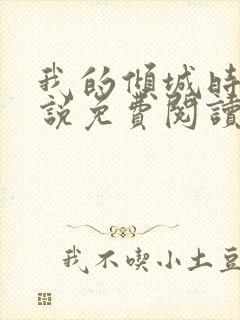 我的傾城時
說免費閱讀
我不喫小土豆